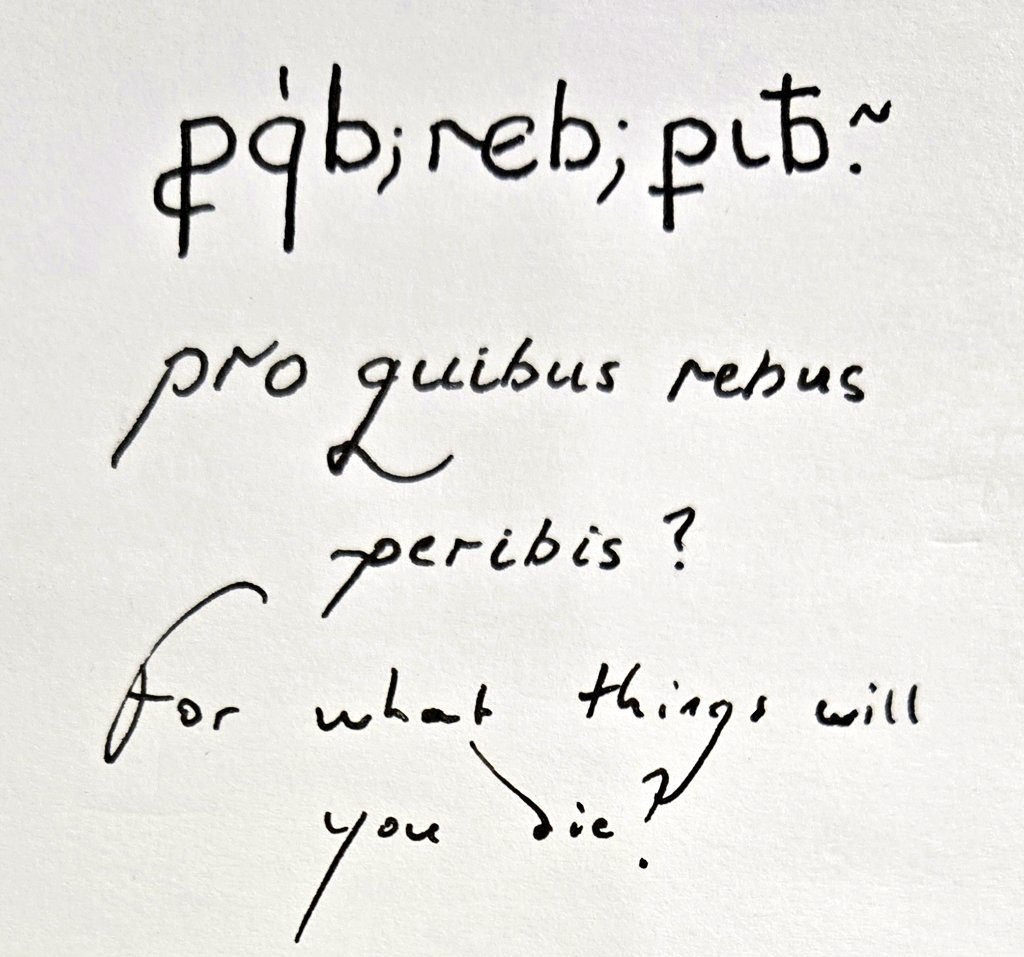 ꝓq̍b;reb;ꝑıƀ.~
pro quibus rebus
peribis?
For what things will
you die?